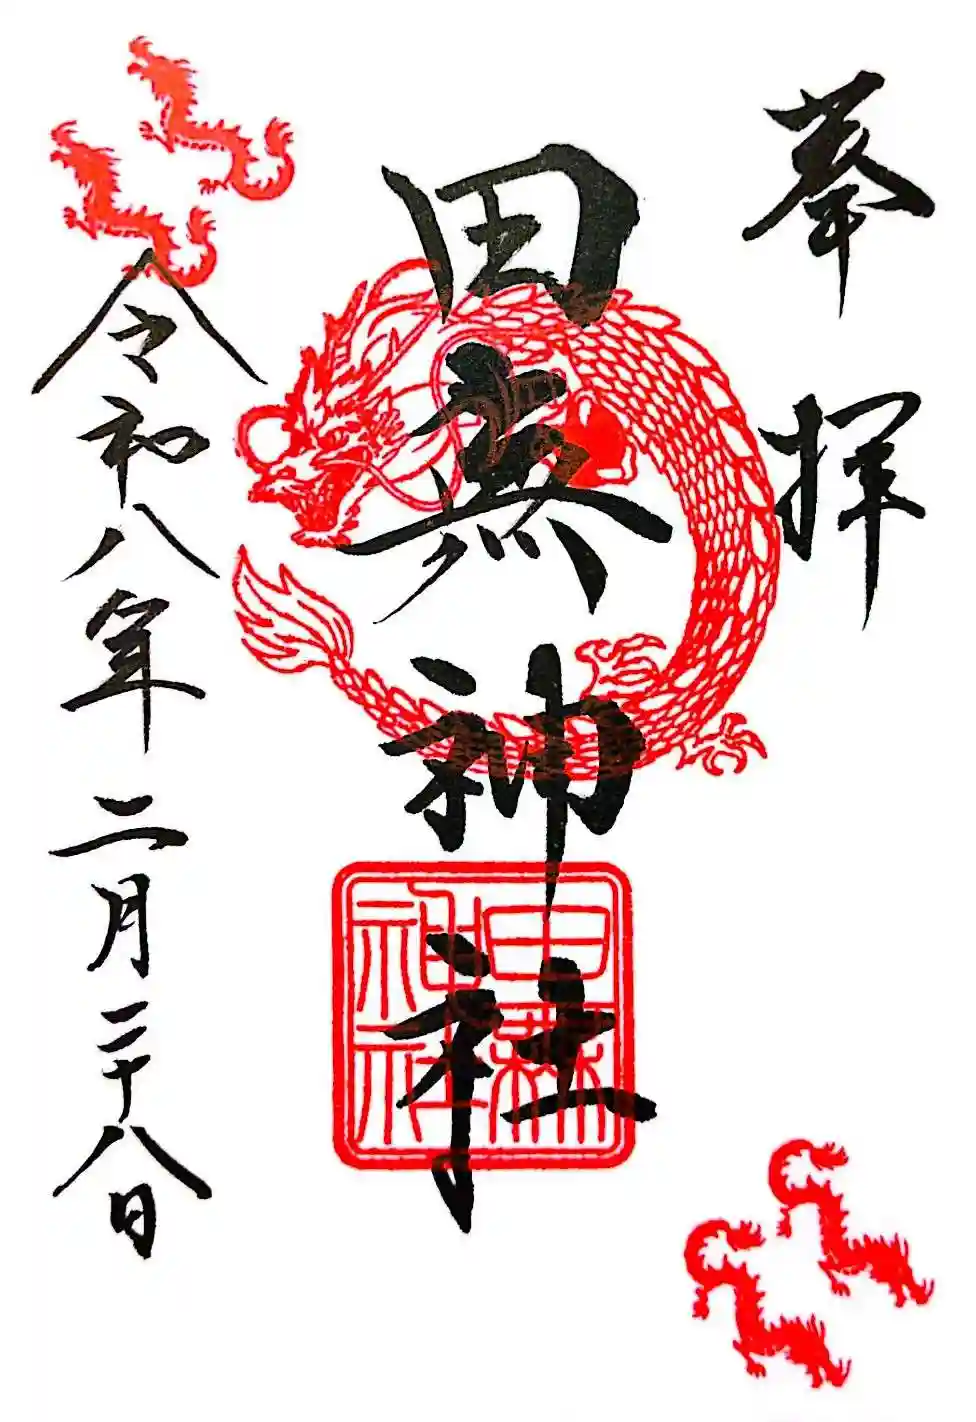 奉拝
田無神社
田無神社
令和八年二月二十八日